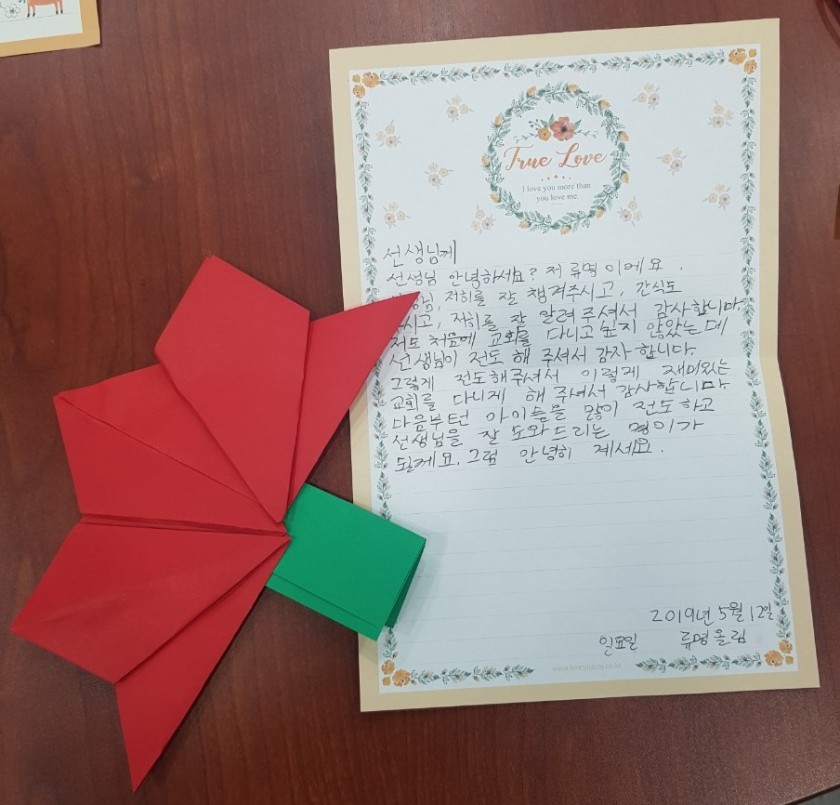 True Love
I love you more than
you love me.
선생님께
선생님 안녕하세요? 저 류명이에요.
저희를 잘 챙겨주시고, 간식도
주시고, 저희를 잘 알려주셔서 감사합니다.
저도 처음에 교회를 다니고 싶지 않았는데
선생님이 전도 해 주셔서 감사합니다.
그렇게 전도해주셔서 이렇게 재미있는
교회를 다니게 해 주셔서 감사합니다
다음부턴 아이들을 많이 전도하고
선생님을 잘 도와드리는 명이가
될께요. 그럼 안녕히 계세요.
2019년 5월 12일
일요일 류명올림